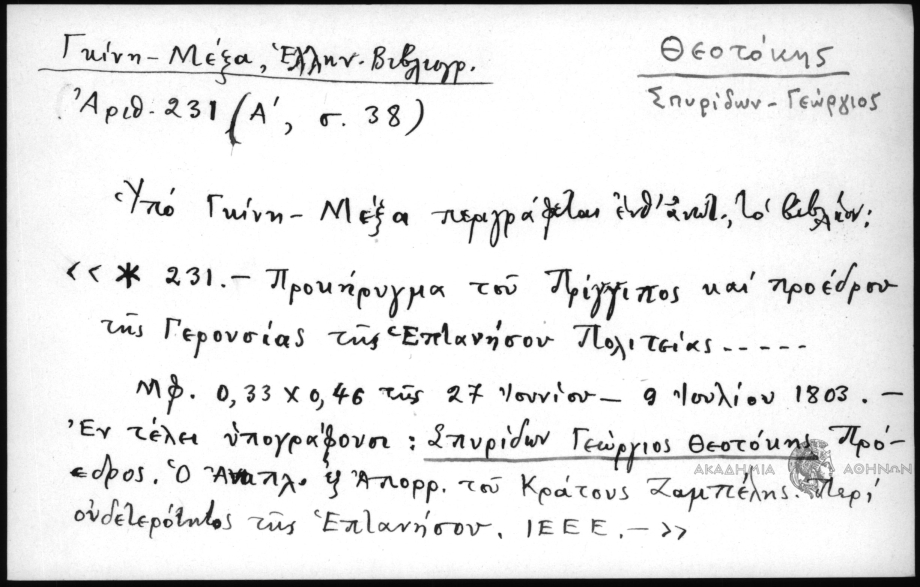 Γκίνη - Μέξα, Ἑλλην. Βιβλιογρ.
Ἀριθ. 231 (Α', σ. 38)
Θεοτόκης
Σπυρίδων - Γεώργιος
Ὑπό Γκίνη - Μέξα περιγράφεται ἐνθ' ἀνωτ., τό βιβλίον:
<< * 231. - Προκήρυγμα τοῦ Πρίγγιπος καί προέδρου
τῆς Γερουσίας τῆς Ἑπτανήσου Πολιτείας - - - - -
Μφ. 0,33 x 0,46 τῆς 27 Ἰουνίου - 9 Ἰουλίου 1803. -
Ἐν τέλει ὑπογράφουσι: Σπυρίδων Γεώργιος Θεοτόκης Πρό-
εδρος. Ὁ Ἀναπλ. ἐξ Ἀπορρ. τοῦ Κράτους Ζαμπέλης. Περί
οὐδετερότητος τῆς Ἑπτανήσου. ΙΕΕΕ. - >>
ΑΚΑΔΗΜΙΑ ΑΘΗΝΩΝ